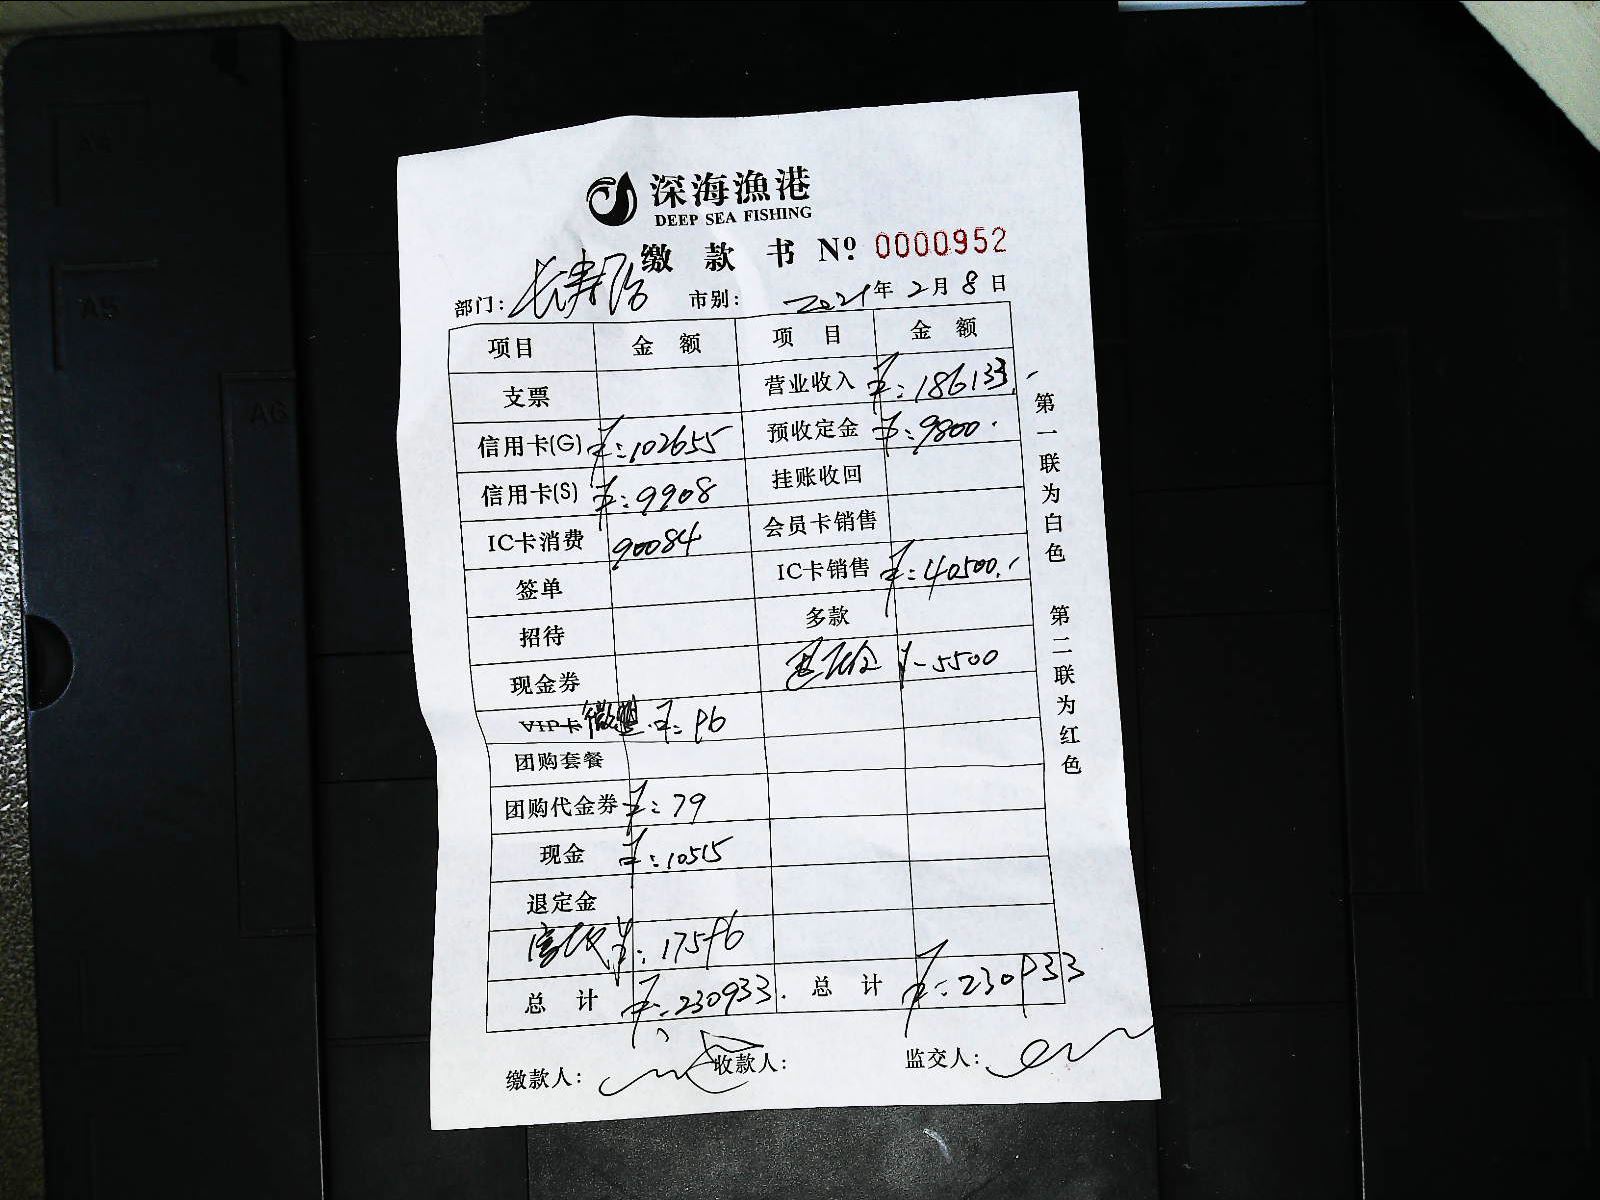 深海漁港
DEEP SEA FISHING
缴款书 Nº 0000952
部门: 长寿路 市别: 2021年2月8日
项目 金额 项目 金额
支票 营业收入 ¥:186133.-
信用卡(G) ¥:102655 预收定金 ¥:9800.
信用卡(S) ¥:9908 挂账收回
IC卡消费 90084 会员卡销售
签单 IC卡销售 ¥:40500.-
招待 多款
现金券 退定金 ¥-5500
VIP卡 微盟 ¥:96
团购套餐
团购代金券 ¥:79
现金 ¥:10515
退定金
¥:17596
总计 ¥:230933. 总计 ¥:230933
缴款人: 收款人: 监交人:
第一联为白色 第二联为红色
A4
A5
A6